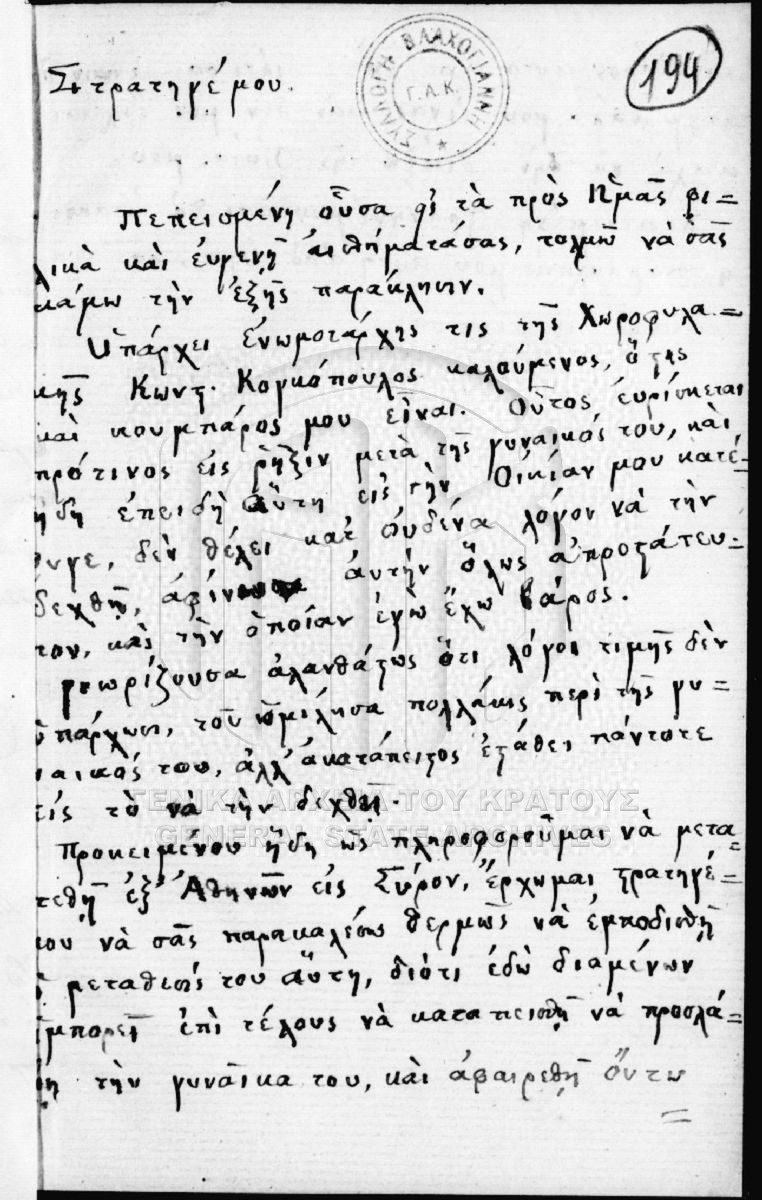 Στρατηγέ μου.
194
ΣΥΛΛΟΓΗ ΒΛΑΧΟΓΙΑΝΝΗ
Γ.Α.Κ.
Πεπεισμένη οὖσα διὰ τὰ πρὸς Ἡμᾶς φι=
λικὰ καὶ εὐγενῆ αἰσθήματά σας, τολμῶ νὰ σᾶς
κάμω τὴν ἑξῆς παράκλησιν.
Ὑπάρχει ἐνωμοτάρχης τις τῆς Χωροφυλα=
κῆς Κωνστ. καλούμενος, ὅστις
καὶ κουμπάρος μου εἶναι. Οὗτος εὑρίσκεται
πρό τινος εἰς ῥῆξιν μετὰ τῆς γυναικός του, καὶ
ἤδη ἐπειδὴ αὕτη εἰς τὴν Οἰκίαν μου κατέ=
φυγε, δὲν θέλει κατ' οὐδένα λόγον νὰ τὴν
δεχθῇ, αὐτὴν ὅλως ἀπροστάτευ=
τον, καὶ τὴν ὁποίαν ἐγὼ ἔχω βάρος.
γνωρίζουσα ἀλανθάστως ὅτι λόγοι τιμῆς δὲν
ὑπάρχωσι, τοῦ ὡμίλησα πολλάκις περὶ τῆς γυ=
ναικός του, ἀλλ' ἀκατάπειστος ἐστάθει πάντοτε
εἰς τὸ νὰ τὴν δεχθεῖ.
Προκειμένου ἤδη ὡς πληροφοροῦμαι νὰ μετα=
τεθῇ ἐξ Ἀθηνῶν εἰς Σύρον, ἔρχωμαι στρατηγέ=
μου νὰ σᾶς παρακαλέσω θερμῶς νὰ ἐμποδισθῇ
ἡ μεταθεσίς του αὕτη, διότι ἐδῶ διαμένων
ἠμπορεῖ ἐπὶ τέλους νὰ καταπεισθῇ νὰ προσλά=
βη τὴν γυναῖκα του, καὶ ἀφαιρεθῇ οὕτω
ΓΕΝΙΚΑ ΑΡΧΕΙΑ ΤΟΥ ΚΡΑΤΟΥΣ
GENERAL STATE ARCHIVES